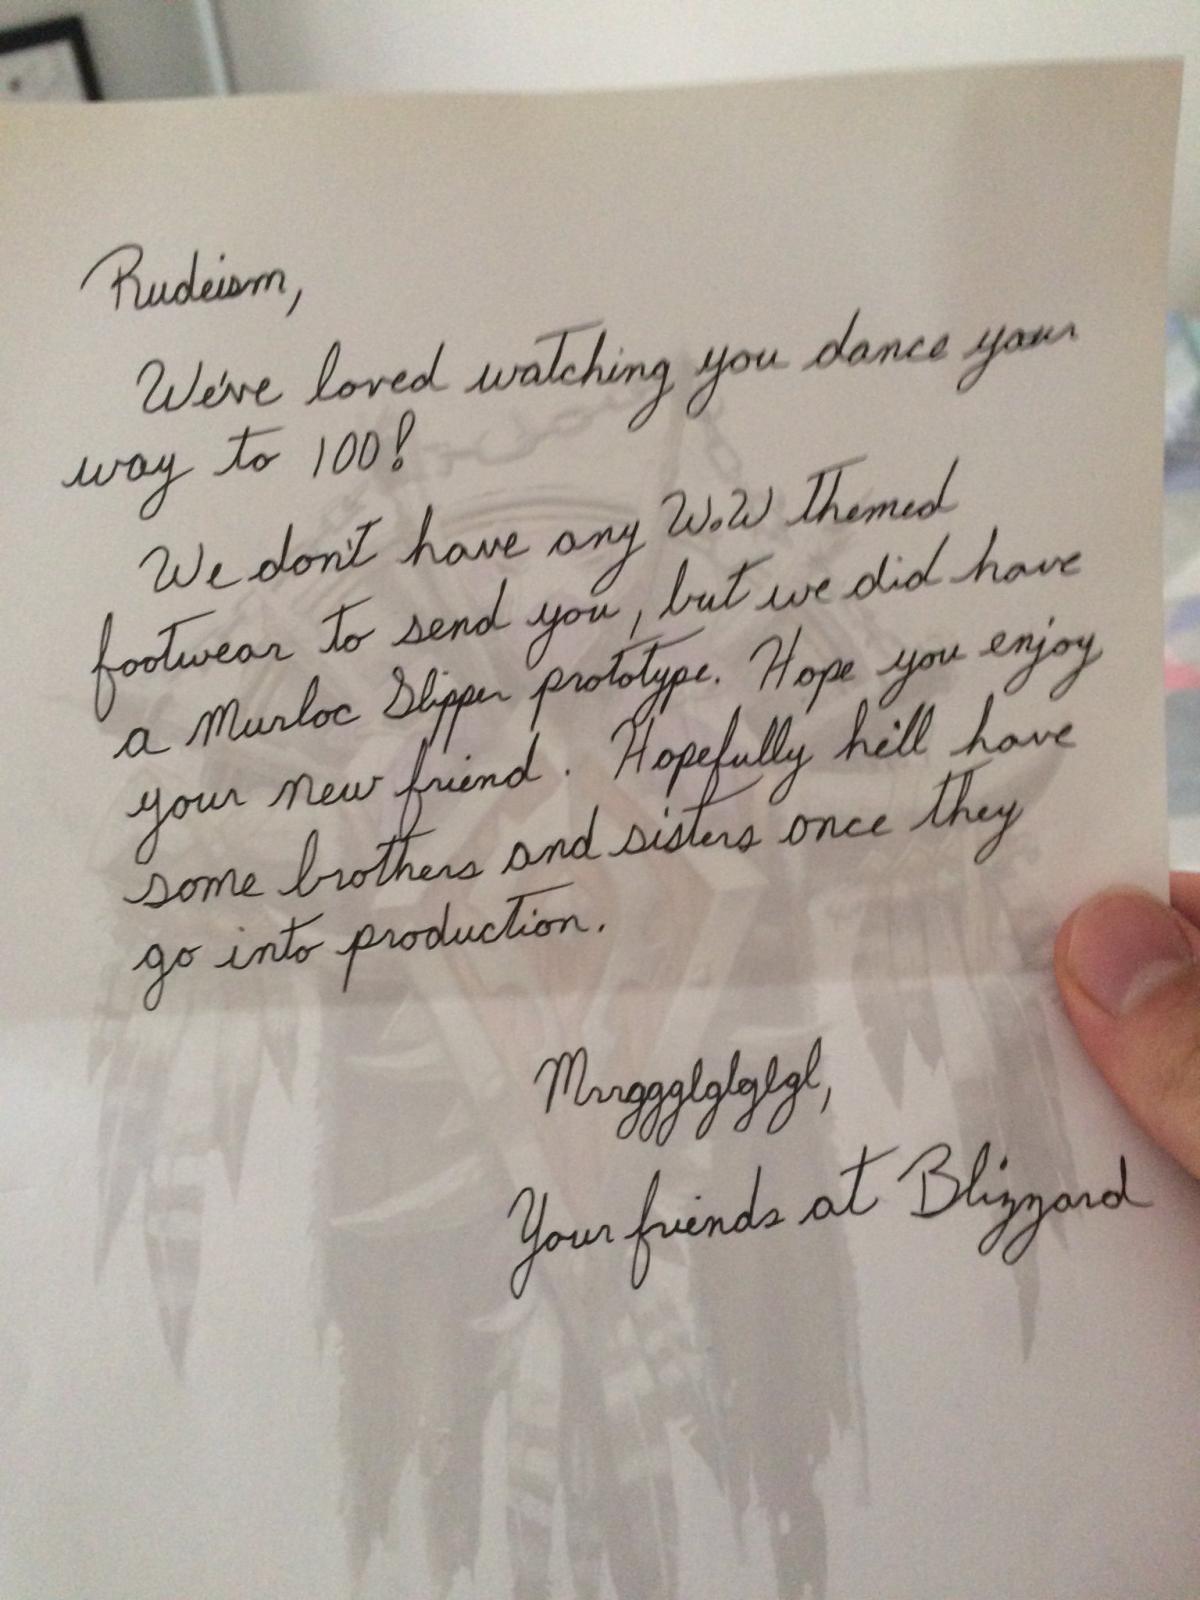 Rudeism,
We've loved watching you dance your
way to 100!
We don't have any WoW themed
footwear to send you, but we did have
a Murloc Slipper prototype. Hope you enjoy
your new friend. Hopefully he'll have
some brothers and sisters once they
go into production.
Mrrggglglglgl,
Your friends at Blizzard